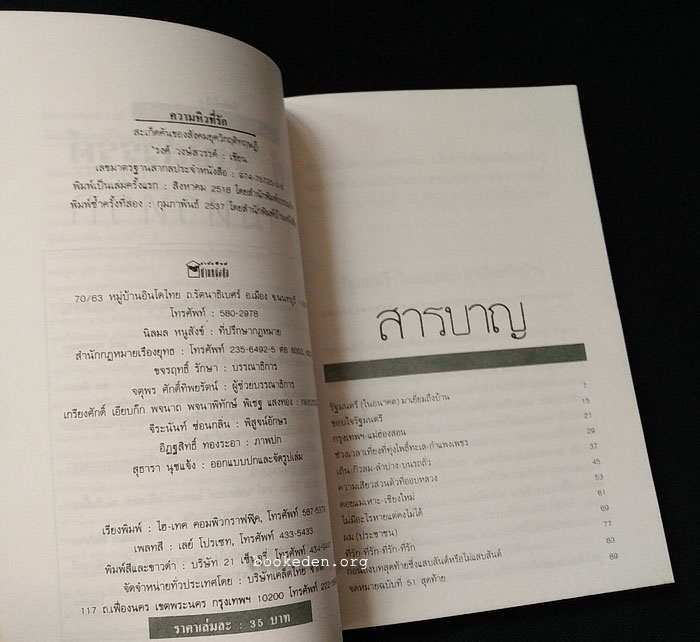 ความหิวที่รัก
สะเก็ดคันของสังคมยุควิกฤติทฤษฎี
'รงค์ วงษ์สวรรค์ : เขียน
เลขมาตรฐานสากลประจำหนังสือ : 974-
พิมพ์เป็นเล่มครั้งแรก : สิงหาคม 2518 โดยสำนักพิมพ์
พิมพ์ซ้ำครั้งที่สอง : กุมภาพันธ์ 2537 โดยสำนักพิมพ์
70/63 หมู่บ้านอินโดไทย ถ.รัตนาธิเบศร์ อ.เมือง จ.นนทบุรี
โทรศัพท์ : 580-2978
นิลมล หนูสังข์ : ที่ปรึกษากฎหมาย
สำนักกฎหมายเรืองยุทธ : โทรศัพท์ 235-6492-5 ต่อ 6002,
ขจรฤทธิ์ รักษา : บรรณาธิการ
จตุพร ศักดิ์ทิพยรัตน์ : ผู้ช่วยบรรณาธิการ
เกรียงศักดิ์ เฮียบกิ๊ก พจนาถ พจนาพิทักษ์ พิเชฐ แสงทอง :
จีระนันท์ ซ่อนกลิ่น : พิสูจน์อักษร
อิฏฐสิทธิ์ ทองระอา : ภาพปก
สุธารา นุชแจ้ง : ออกแบบปกและจัดรูปเล่ม
เรียงพิมพ์ : ไฮ-เทค คอมพิวกราฟฟิค, โทรศัพท์ 587-5379
เพลทสี : เลย์ โปรเซท, โทรศัพท์ 433-5433
พิมพ์สีและขาวดำ : บริษัท 21 เซ็นจูรี่, โทรศัพท์ 434-
จัดจำหน่ายทั่วประเทศโดย : บริษัทเคล็ดไทย
117 ถ.เฟื่องนคร เขตพระนคร กรุงเทพฯ 10200 โทรศัพท์ 222-
ราคาเล่มละ : 35 บาท
สารบาญ
รัฐมนตรี (ในอนาคต) มาเยี่ยมถึงบ้าน 7
ขอบใจรัฐมนตรี 15
กรุงเทพฯ-แม่ฮ่องสอน 21
ช่วงเวลาเที่ยงที่ทุ่งโพธิ์ทะเล-กำแพงเพชร 29
เถิน กิวลม-ลำปาง-บนรถถัว 37
ความเสียวส่วนตัวที่ออบหลวง 45
ดอยแม่เหาะ-เชียงใหม่ 53
ไม่มีอะไรหายแต่คงไม่ได้ 61
ผม (ประชาชน) 69
ที่รัก-ที่รัก-ที่รัก-ที่รัก 77
ก่อนถึงบทสุดท้ายซึ่งแสบสันต์หรือไม่แสบสันต์ 83
จดหมายฉบับที่ 51 สุดท้าย 89
bookeden.org